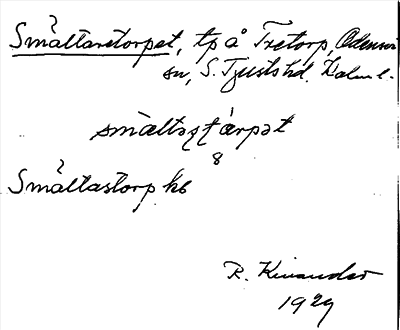 Smältaretorpet, tp å Tretorp, Odensvi
sn, S. Tjusts hd. Kalm l.
smæltastårpət
8
Smältastorp hb
R. Kinander
1929